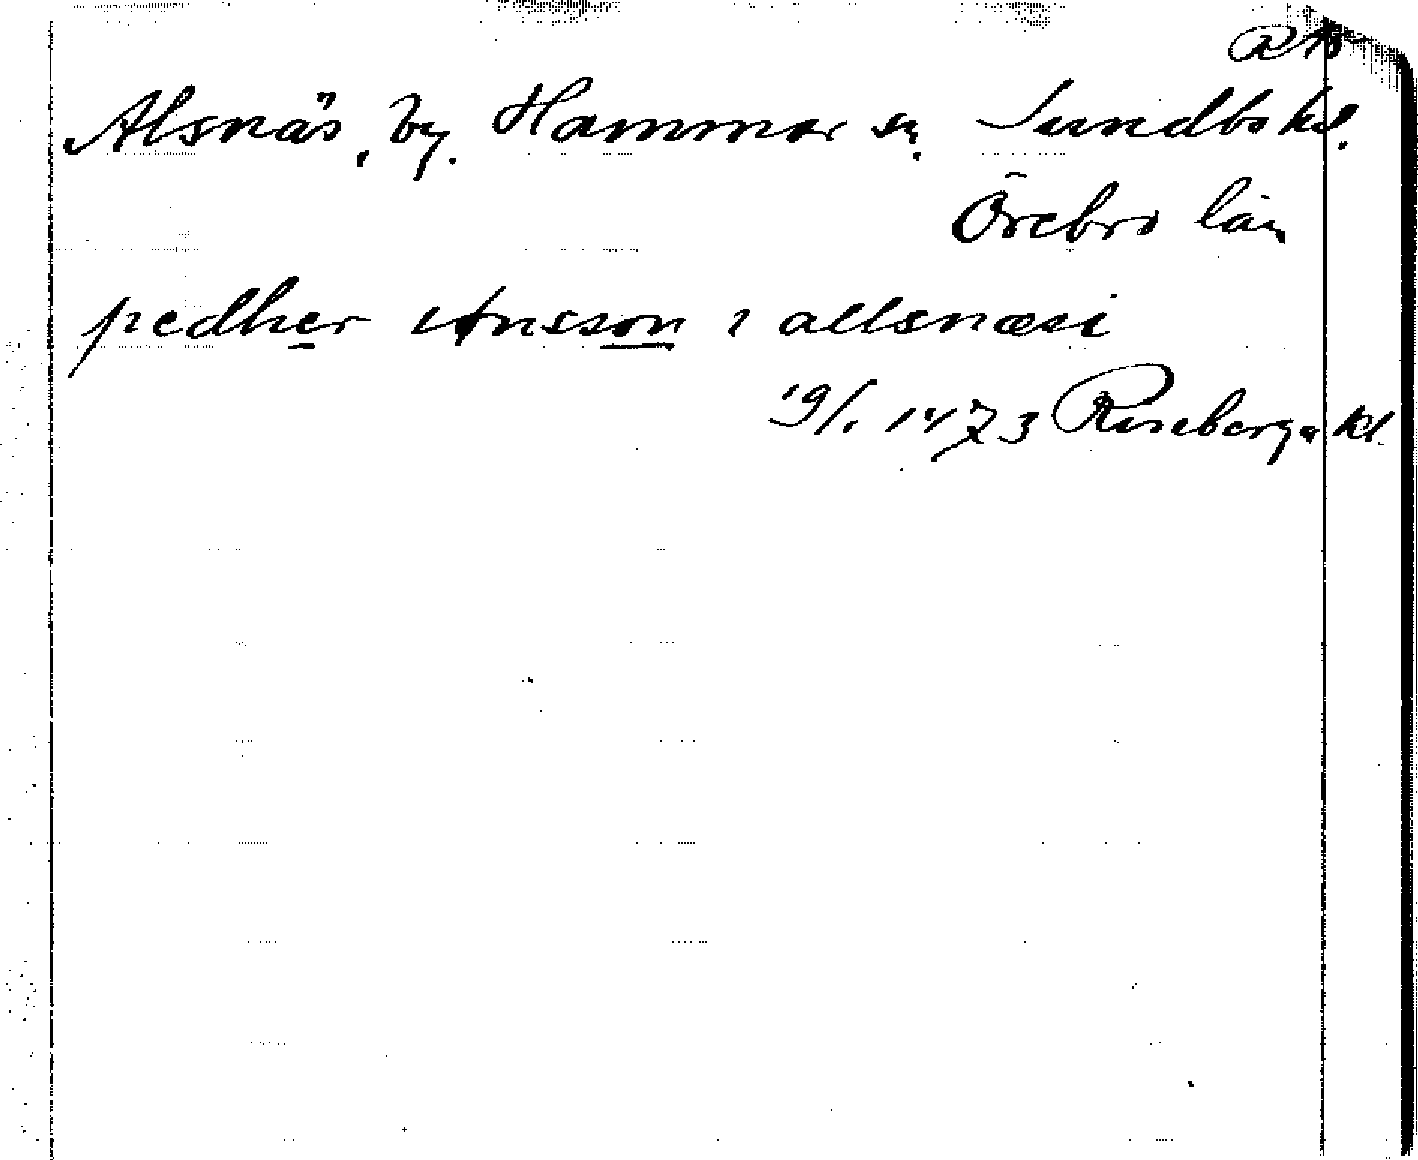 RA
Alsnäs, by. Hammar sn, Sundbo hd.
Örebro län
pedher Ansson i allsnæsi
19/1 1473 Riseberga kl.